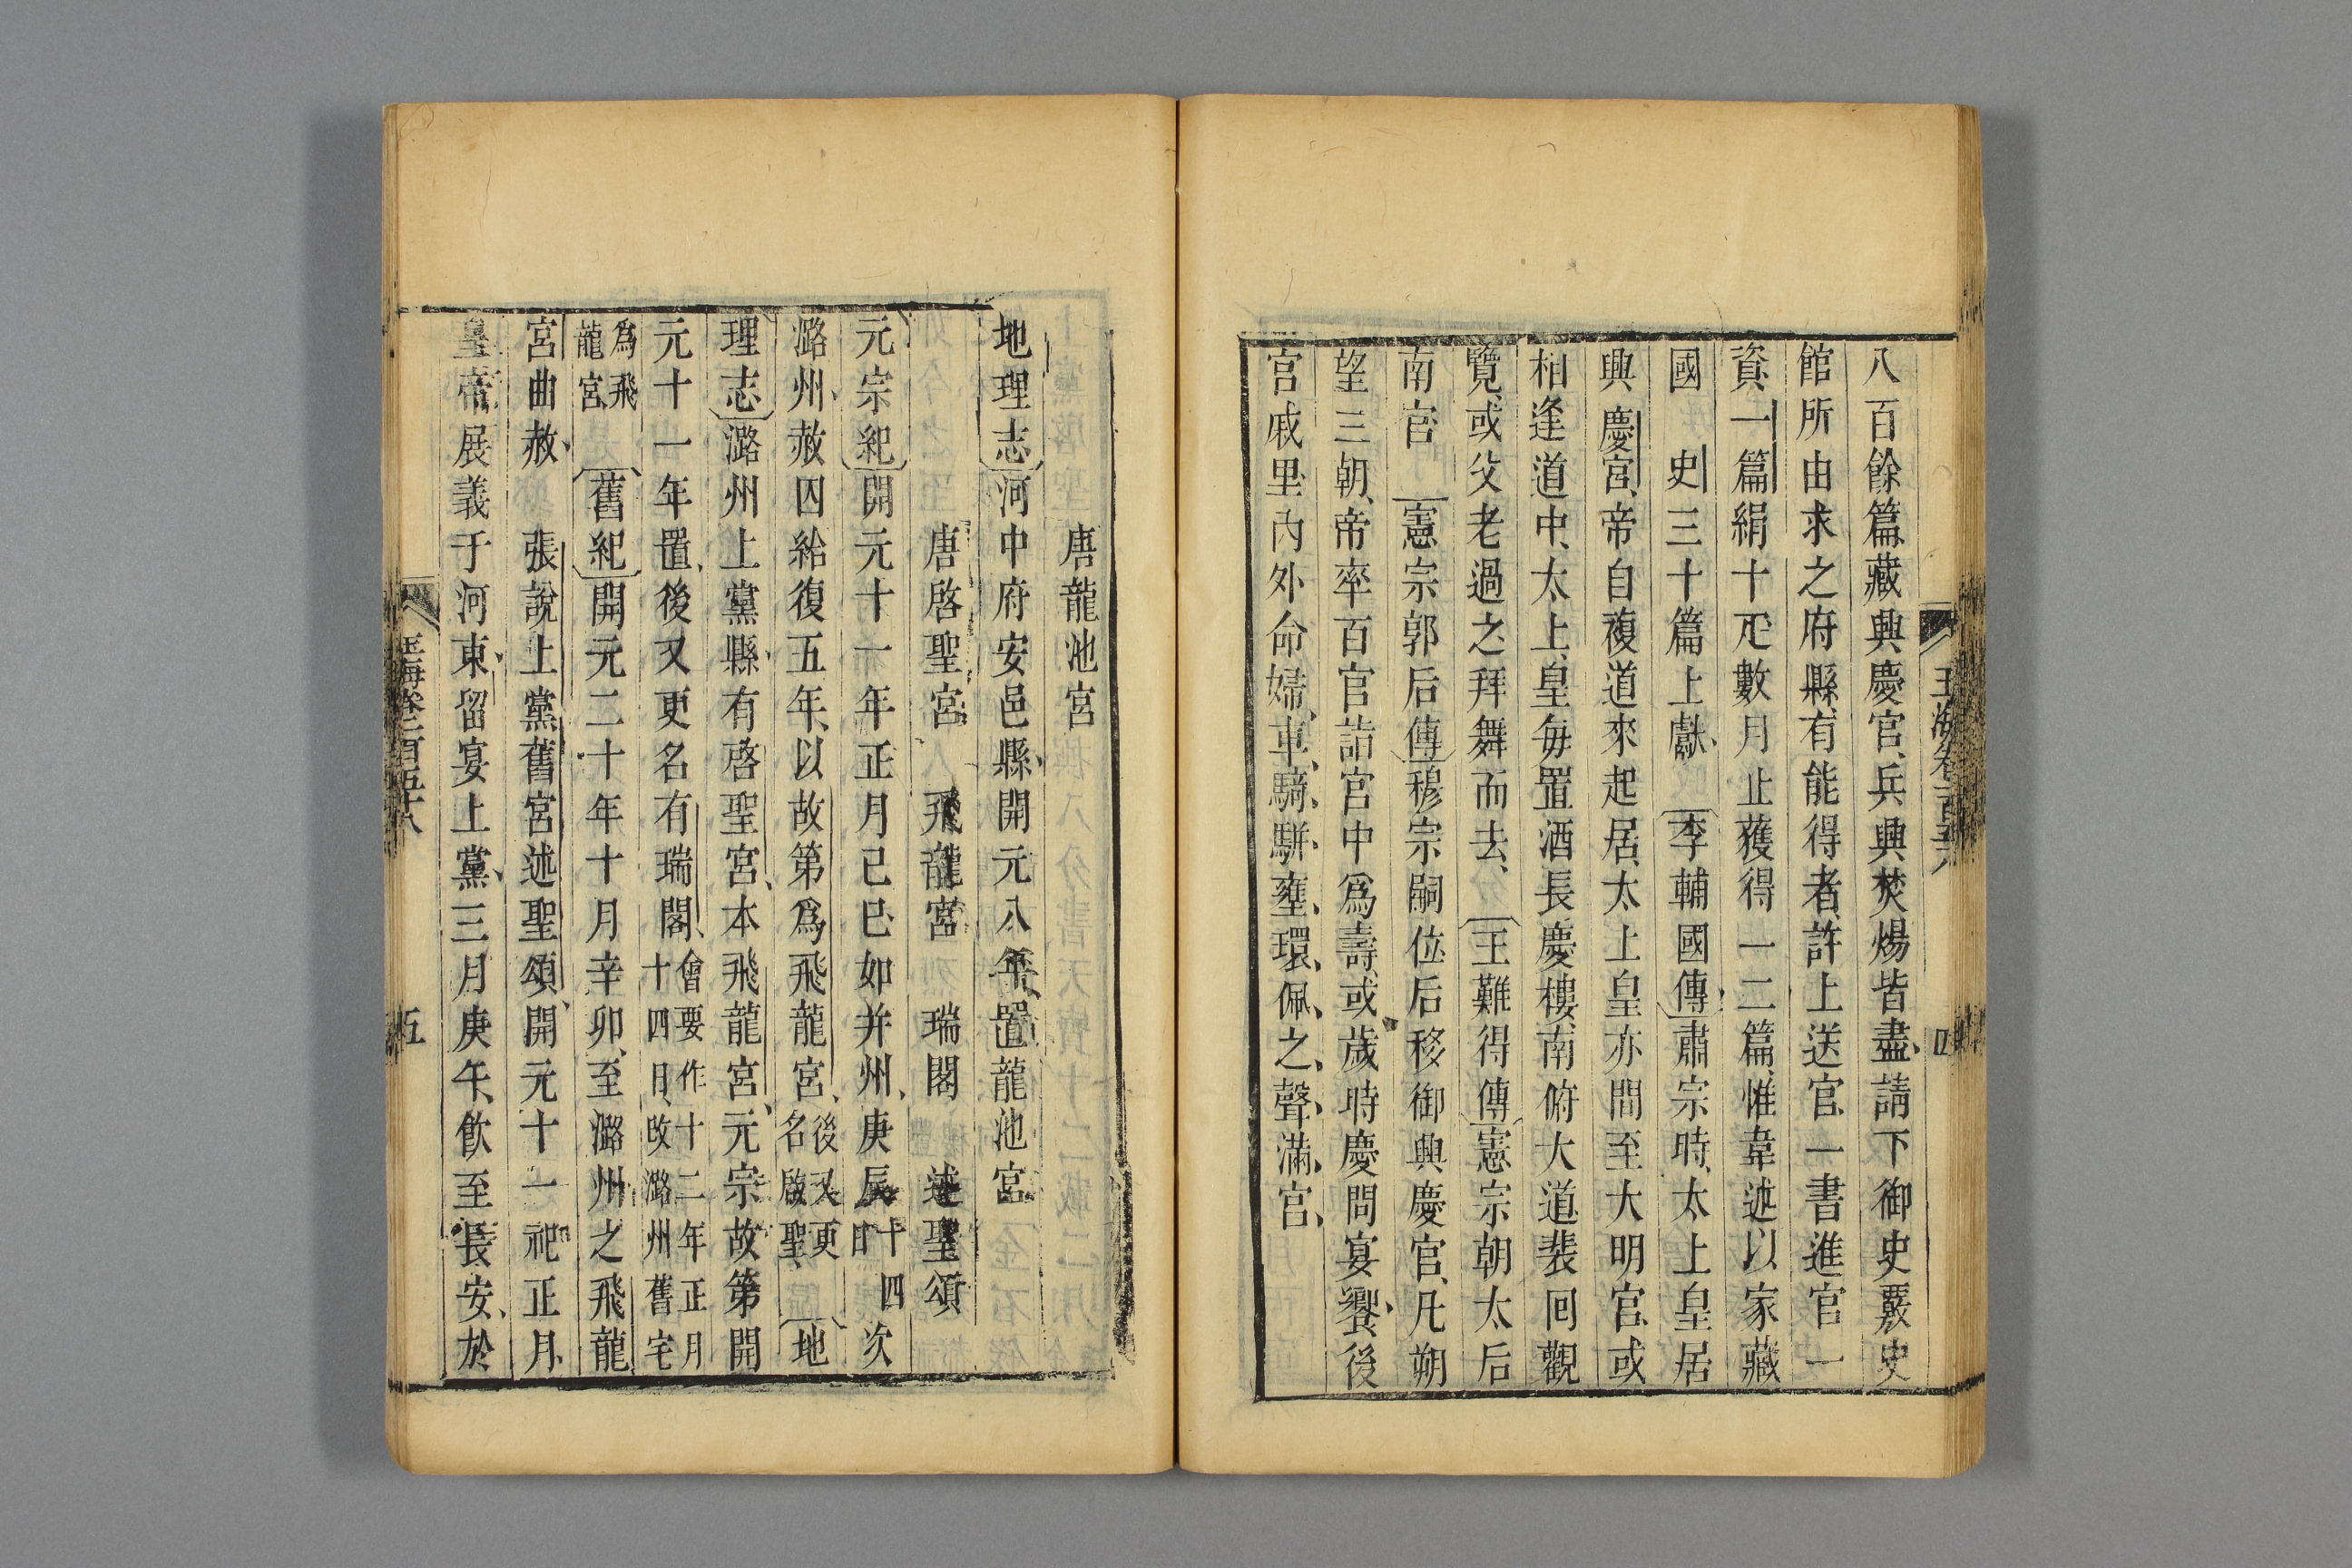 八百餘篇藏興慶宮兵興焚煬皆盡請下御史覈史
館所由求之府縣有能得者許上送官一書進官一
資一篇絹十疋數月止獲得一二篇惟韋述以家藏
國　史三十篇上獻　李輔國傳肅宗時太上皇居
興慶宮帝自複道來起居太上皇亦間至大明宮或
相逢道中太上皇每置酒長慶樓南俯大道裴回觀
覽或父老過之拜舞而去　王難得傳憲宗朝太后
南宮　憲宗郭后傳穆宗嗣位后移御興慶宮凡朔
望三朝帝率百官詣宮中爲壽或歲時慶問宴饗後
宮戚里內外命婦車騎駢壅環佩之聲滿宮
玉海卷一百五十八　四
唐龍池宮
地理志河中府安邑縣開元八年置龍池宮
唐啓聖宮　飛龍宮　瑞閣　述聖頌
元宗紀開元十一年正月己巳如并州庚辰十四日次
潞州赦囚給復五年以故第爲飛龍宮後又更名啟聖　地
理志潞州上黨縣有啓聖宮本飛龍宮元宗故第開
元十一年置後又更名有瑞閣會要作十二年正月十四日改潞州舊宅
爲飛龍宮　舊紀開元二十年十月辛卯至潞州之飛龍
宮曲赦　張說上黨舊宮述聖頌開元十一祀正月
皇帝展義于河東留宴上黨三月庚午飲至長安於
玉海卷一百五十八　五